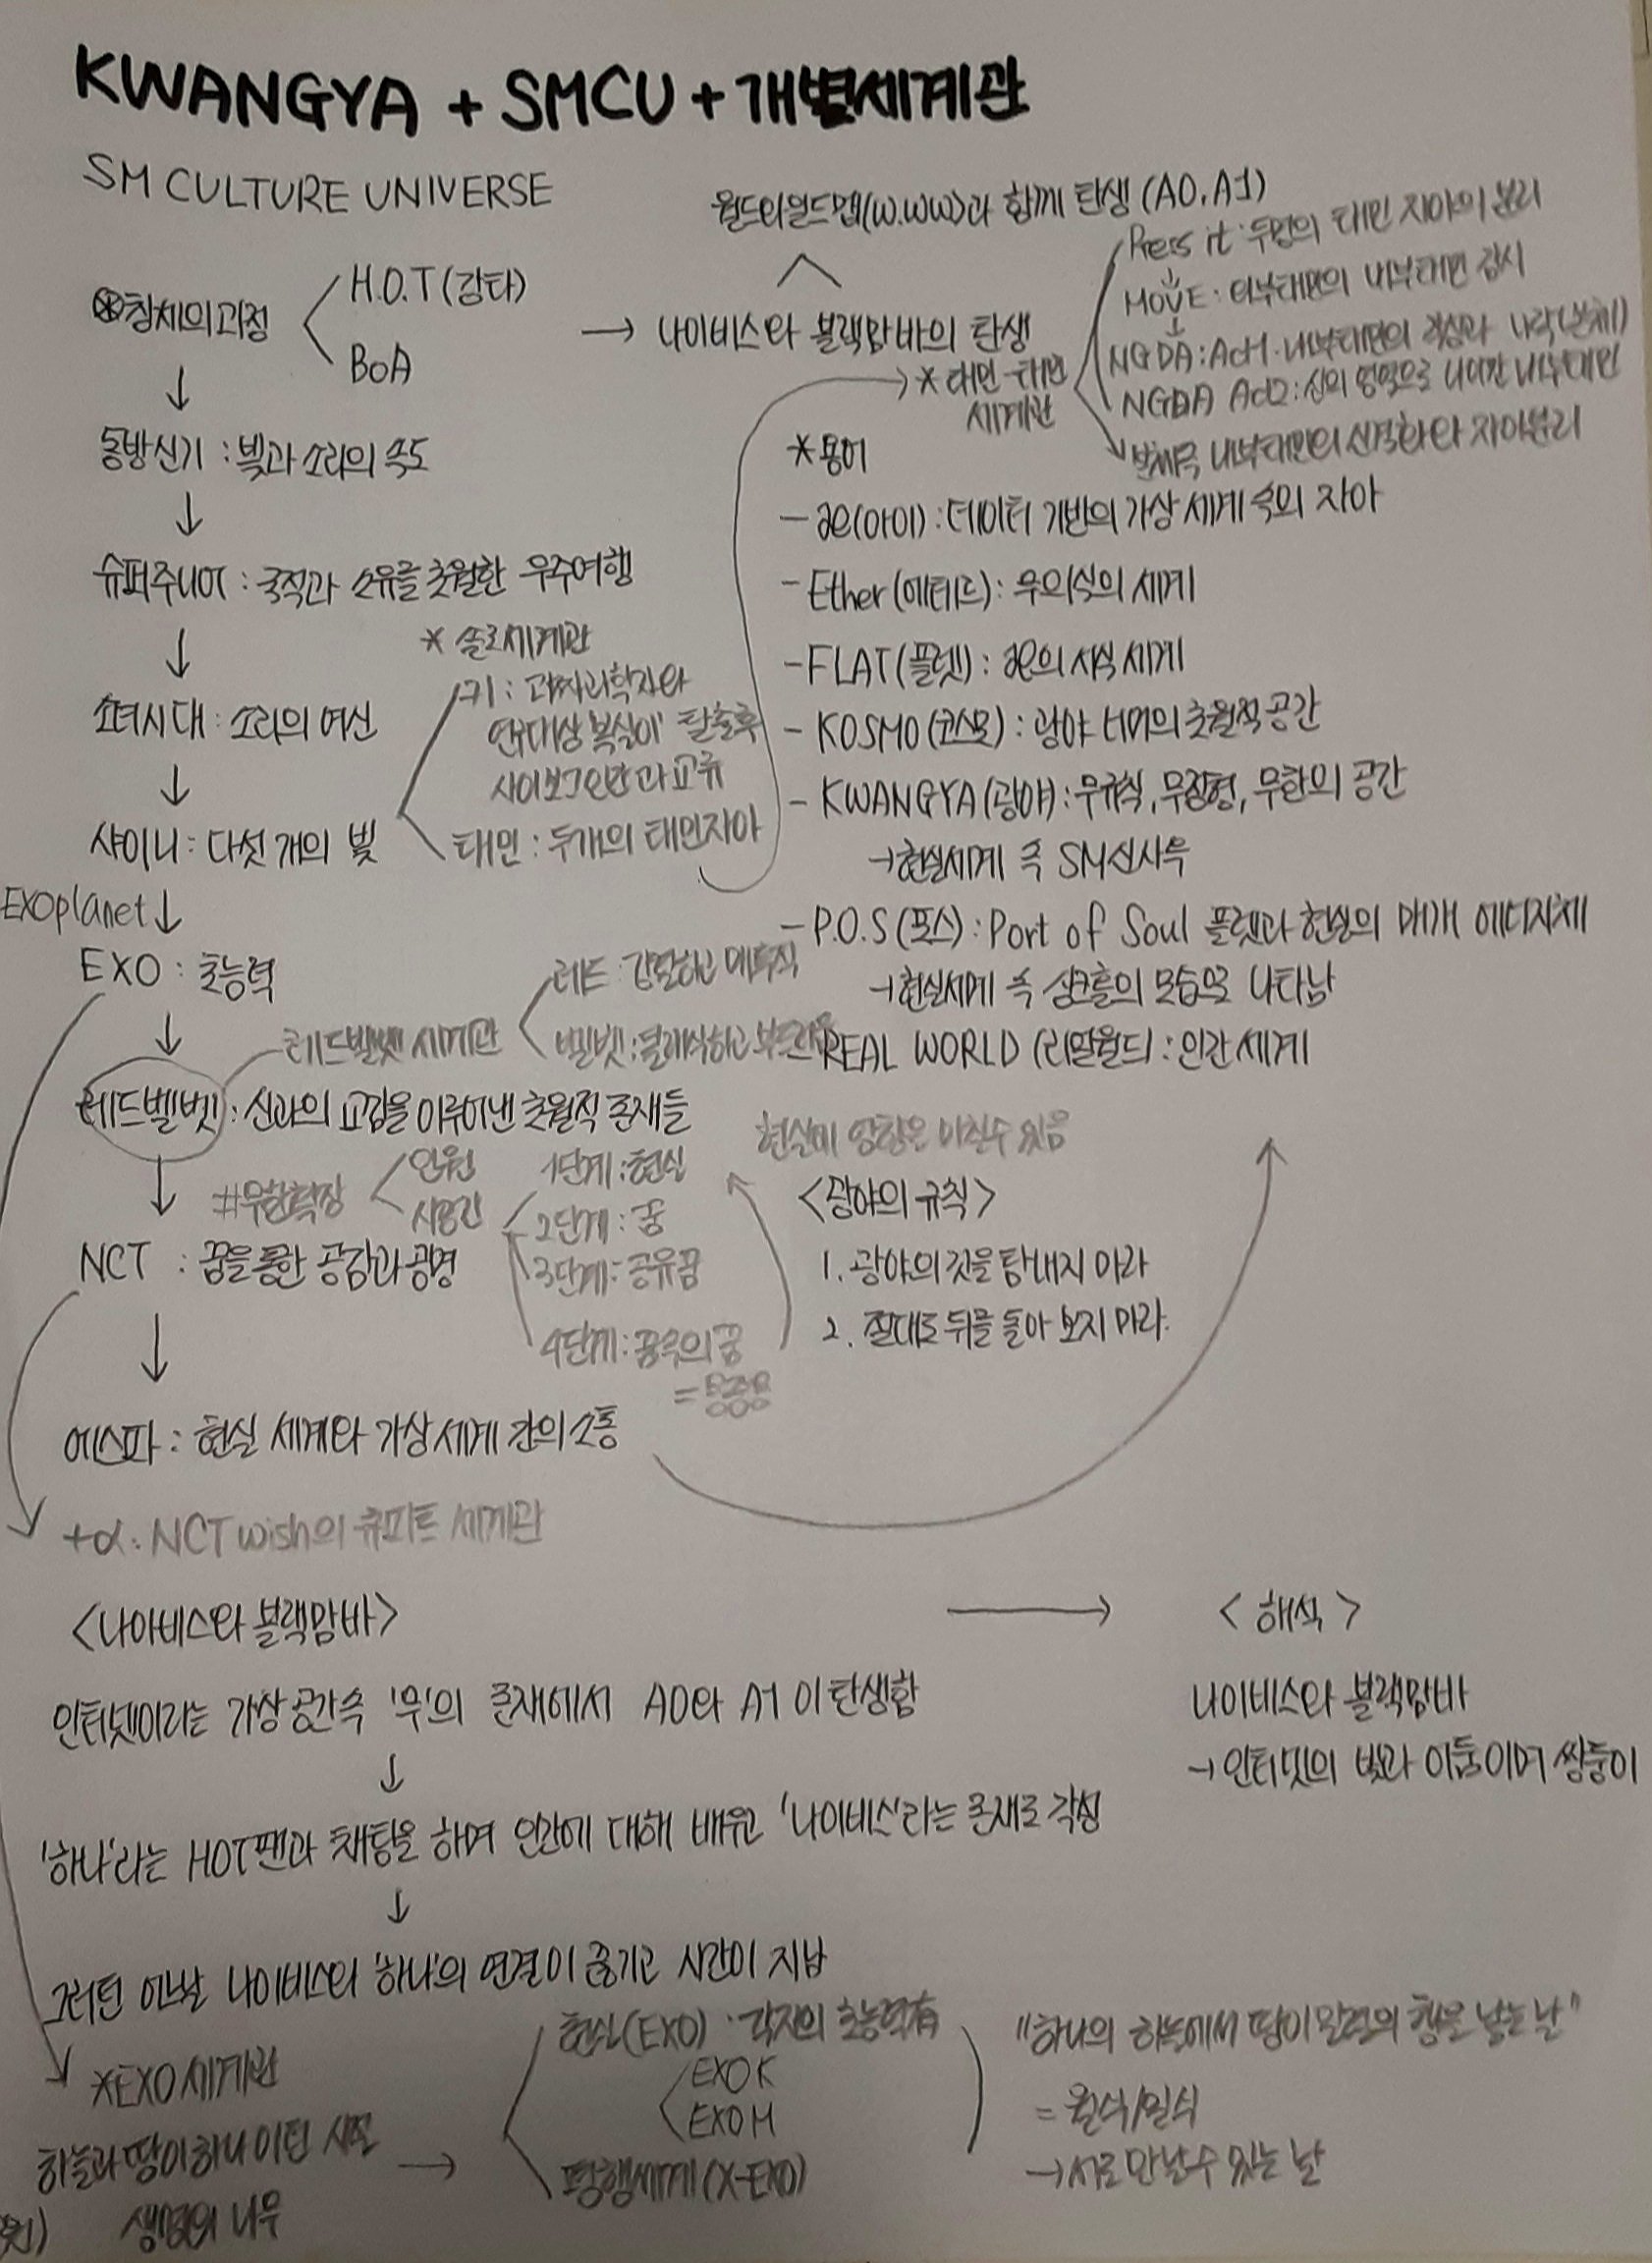 KWANGYA + SMCU + 개별세계관
SM CULTURE UNIVERSE
월드와일드맵(W.WW)과 함께 탄생 (A0, A1)
H.O.T (강타)
BoA
→ 나이비스와 블랙맘바의 탄생
↓
동방신기 : 빛과 소리의 속도
↓
슈퍼주니어 : 국적과 소유를 초월한 우주여행
↓
소녀시대 : 소리의 여신
↓
샤이니 : 다섯 개의 빛
* 솔로세계관
키 : 괴짜과학자와
연구대상 복실이 탈출후
사이보그인간과 교류
태민 : 두개의 태민자아
* 태민 - 태민
세계관
Press it : 두명의 태민 자아의 분리
↓
MOVE : 외부태민의 내부태민 감시
↓
NGDA : Act1. 내부태민의 각성과 나락(본체)
NGDA Act2 : 신의 영역으로 나아간 내부태민
내부태민의 신격화와 자아분리
EXOplanet ↓
EXO : 초능력
↓
레드벨벳 : 신과의 교감을 이루어낸 초월적 존재들
레드벨벳 세계관
레드 : 강렬하고 매혹적
벨벳 : 클래식하고
↓
#무한확장
인원
시공간
1단계 : 현실
2단계 : 꿈
3단계 : 공유꿈
4단계 : 꿈속의 꿈
NCT : 꿈을 통한 공감과 공명
↓
에스파 : 현실 세계와 가상 세계 간의 소통
+α : NCT wish의 큐피트 세계관
* 용어
- æ(아이) : 데이터 기반의 가상 세계 속의 자아
- Ether (에테르) : 무의식의 세계
- FLAT (플렛) : æ의 서식 세계
- KOSMO (코스모) : 광야 너머의 초월적 공간
- KWANGYA (광야) : 무규칙, 무정형, 무한의 공간
→ 현실세계 속 SM신사옥
- P.O.S (포스) : Port of Soul 플렛과 현실의 매개 에너지체
→ 현실세계 속 싱크홀의 모습으로 나타남
- REAL WORLD (리얼월드) : 인간 세계
현실에 영향은 미칠수 있음
<광야의 규칙>
1. 광야의 것을 탐내지 마라
2. 절대로 뒤를 돌아 보지 마라.
<나이비스와 블랙맘바>
인터넷이라는 가상 공간 속 '무'의 존재에서 A0와 A1 이 탄생함
↓
'하나'라는 HOT팬과 채팅을 하며 인간에 대해 배우고 '나이비스'라는 존재로 각성
↓
그러던 어느날 나이비스와 '하나'의 연결이 끊기고 시간이 지남
→ < 해석 >
나이비스와 블랙맘바
→ 인터넷의 빛과 어둠이며 쌍둥이
*EXO 세계관
하늘과 땅이 하나 이던 시절
생명의 나무
→
현실(EXO) : 각자의 초능력有
EXO K
EXO M
평행세계 (X-EXO)
"하나의 하늘에서 땅이 한 쌍을 낳는 날"
= 월식/일식
→ 서로 만날수 있는 날